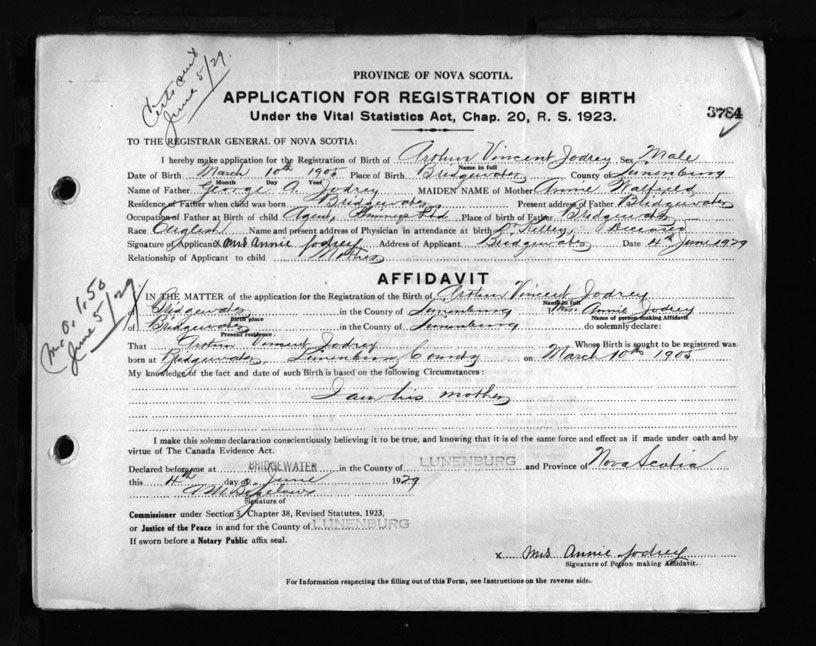 Certs sent
June 5/29.
PROVINCE OF NOVA SCOTIA.
APPLICATION FOR REGISTRATION OF BIRTH
Under the Vital Statistics Act, Chap. 20, R. S. 1923.
3784
TO THE REGISTRAR GENERAL OF NOVA SCOTIA:
I hereby make application for the Registration of Birth of Arthur Vincent Jodrey Sex Male
Name in full
Date of Birth March 10th 1905 Place of Birth Bridgewater County of Lunenburg
Month Day Year
Name of Father George A. Jodrey MAIDEN NAME of Mother Annie
Residence of Father when child was born Bridgewater Present address of Father Bridgewater
Occupation of Father at Birth of child Agent, Place of birth of Father Bridgewater
Race English Name and present address of Physician in attendance at birth Dr Deceased
Signature of Applicant x Mrs Annie Jodrey Address of Applicant Bridgewater Date 4th June 1929
Relationship of Applicant to child Mother
M.O. 1.50
June 5/29
AFFIDAVIT
IN THE MATTER of the application for the Registration of Birth of Arthur Vincent Jodrey
Name in full
of Bridgewater in the County of Lunenburg Mrs. Annie Jodrey
Birth place Name of person making Affidavit
of Bridgewater in the County of Lunenburg do solemnly declare:
Present residence.
That Arthur Vincent Jodrey Whose Birth is sought to be registered was
born at Bridgewater, Lunenburg County on March 10th 1905
My knowledge of the fact and date of such Birth is based on the following Circumstances:
I am his mother
I make this solemn declaration conscientiously believing it to be true, and knowing that it is of the same force and effect as if made under oath and by
virtue of The Canada Evidence Act.
Declared before me at BRIDGEWATER in the County of LUNENBURG and Province of Nova Scotia
this 4th day of June 1929
Signature of
Commissioner under Section 5, Chapter 38, Revised Statutes, 1923,
or Justice of the Peace in and for the County of LUNENBURG
If sworn before a Notary Public affix seal.
x Mrs Annie Jodrey
Signature of Person making Affidavit.
For Information respecting the filling out of this Form, see Instructions on the reverse side.